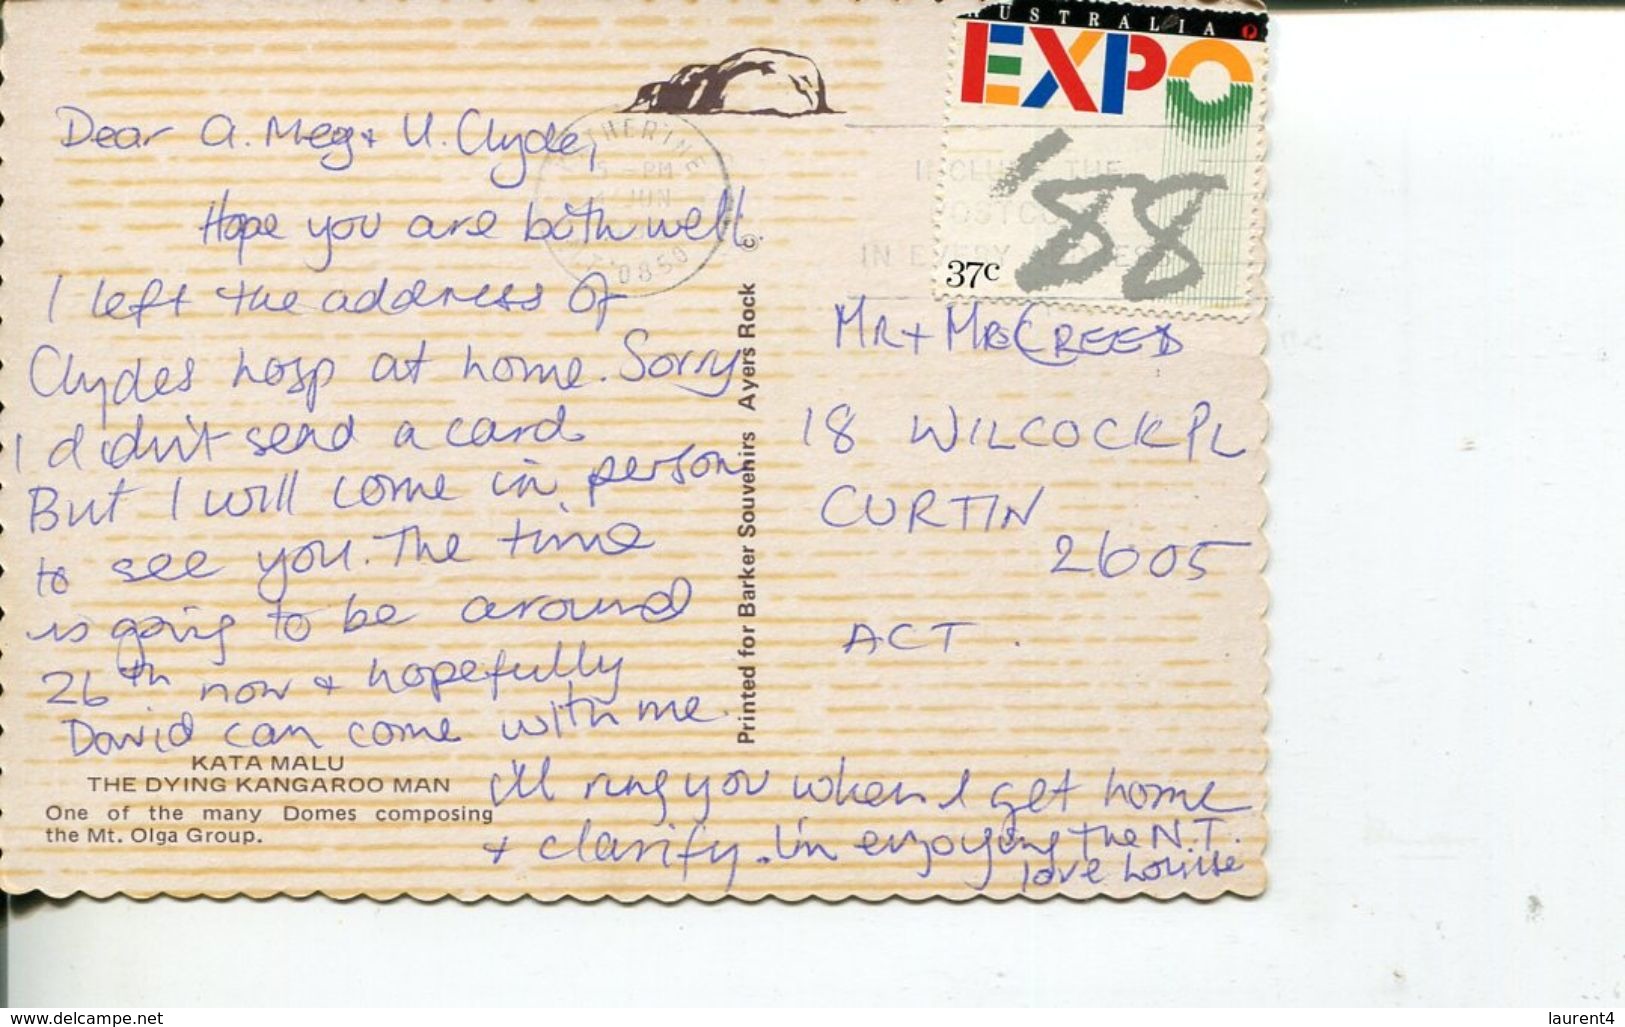 AUSTRALIA
EXPO
'88
37c
KATHERINE
5 - PM
JUN
0850
INCLUDE THE
POSTCODE
IN EVERY ADDRESS
Dear A. Meg + U. Clyde,
Hope you are both well.
I left the address of
Clydes hosp at home. Sorry
I didn't send a card
But I will come in person
to see you. The time
is going to be around
26th now + hopefully
David can come with me.
I'll ring you when I get home
+ clarify. I'm enjoying the N.T.
love Louise
KATA MALU
THE DYING KANGAROO MAN
One of the many Domes composing
the Mt. Olga Group.
Printed for Barker Souvenirs Ayers Rock ©
MR + MRS CREED
18 WILCOCK PL
CURTIN
2605
ACT.
www.delcampe.net
laurent4